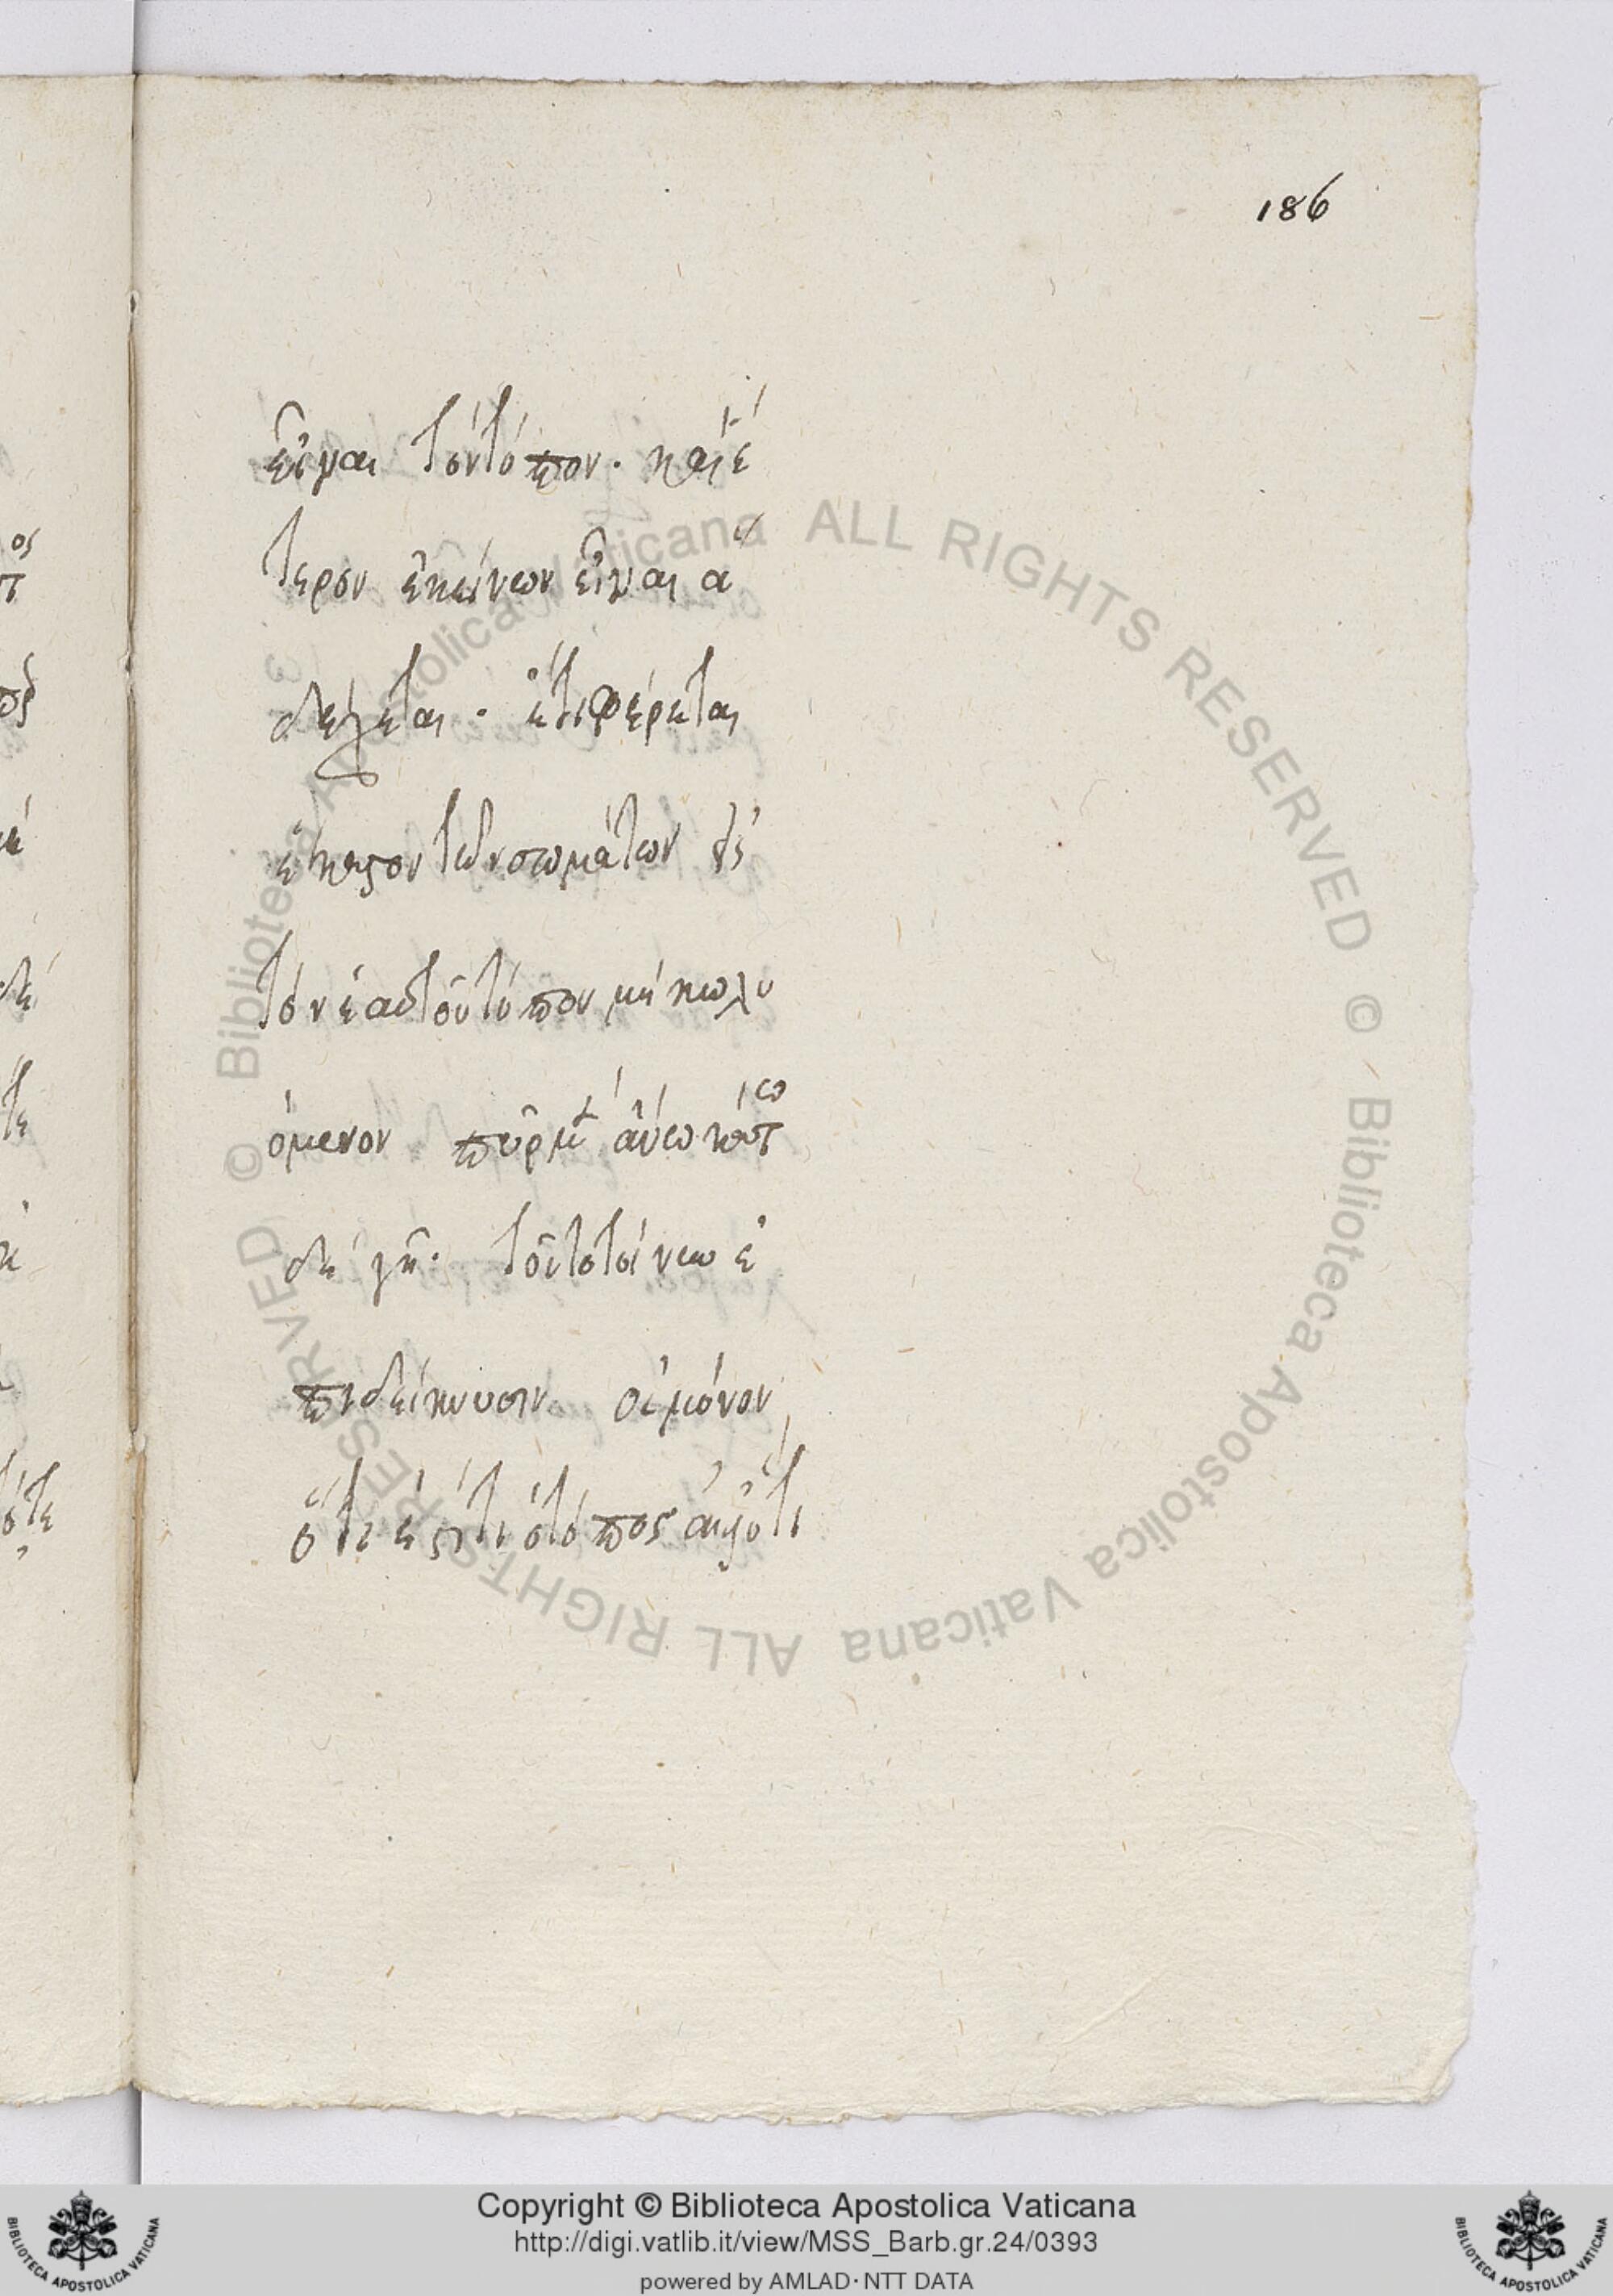 186
εἶναι τὸν τόπον. καὶ ἕ
τερον ἐκείνων εἶναι ἅ
δέχεται. ἔτι φέρεται
ἕκαστον τῶν σωμάτων εἰς
τὸν ἑαυτοῦ τόπον μὴ κωλυ
όμενον πῦρ μὲν ἄνω κάτω
δὲ γῆ. τοῦτο τοίνυν ἐ
πιδείκνυσιν οὐ μόνον
ὅτι ἐστί τι ὁ τόπος ἀλλ' ὅτι
ALL RIGHTS RESERVED © Biblioteca Apostolica Vaticana ALL RIGHTS RESERVED © Biblioteca Apostolica Vaticana
Copyright © Biblioteca Apostolica Vaticana
http://digi.vatlib.it/view/MSS_Barb.gr.24/0393
powered by AMLAD·NTT DATA
BIBLIOTECA APOSTOLICA VATICANA
BIBLIOTECA APOSTOLICA VATICANA